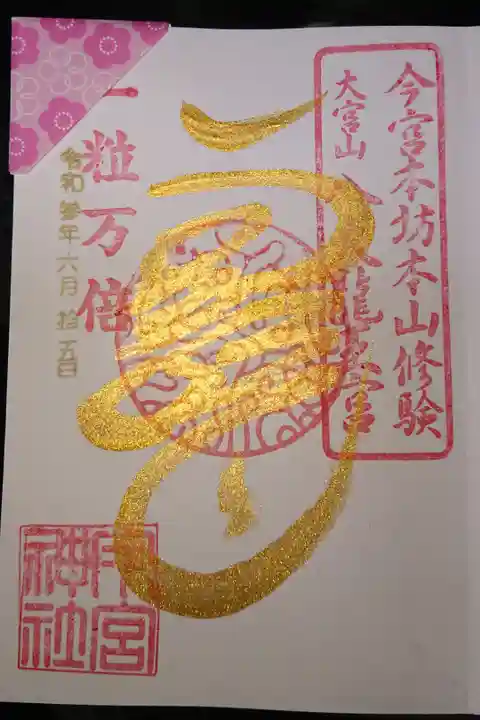 今宮本坊本山修験
大宮山 八大龍王宮
一粒万倍
令和参年六月拾五日
今宮神社